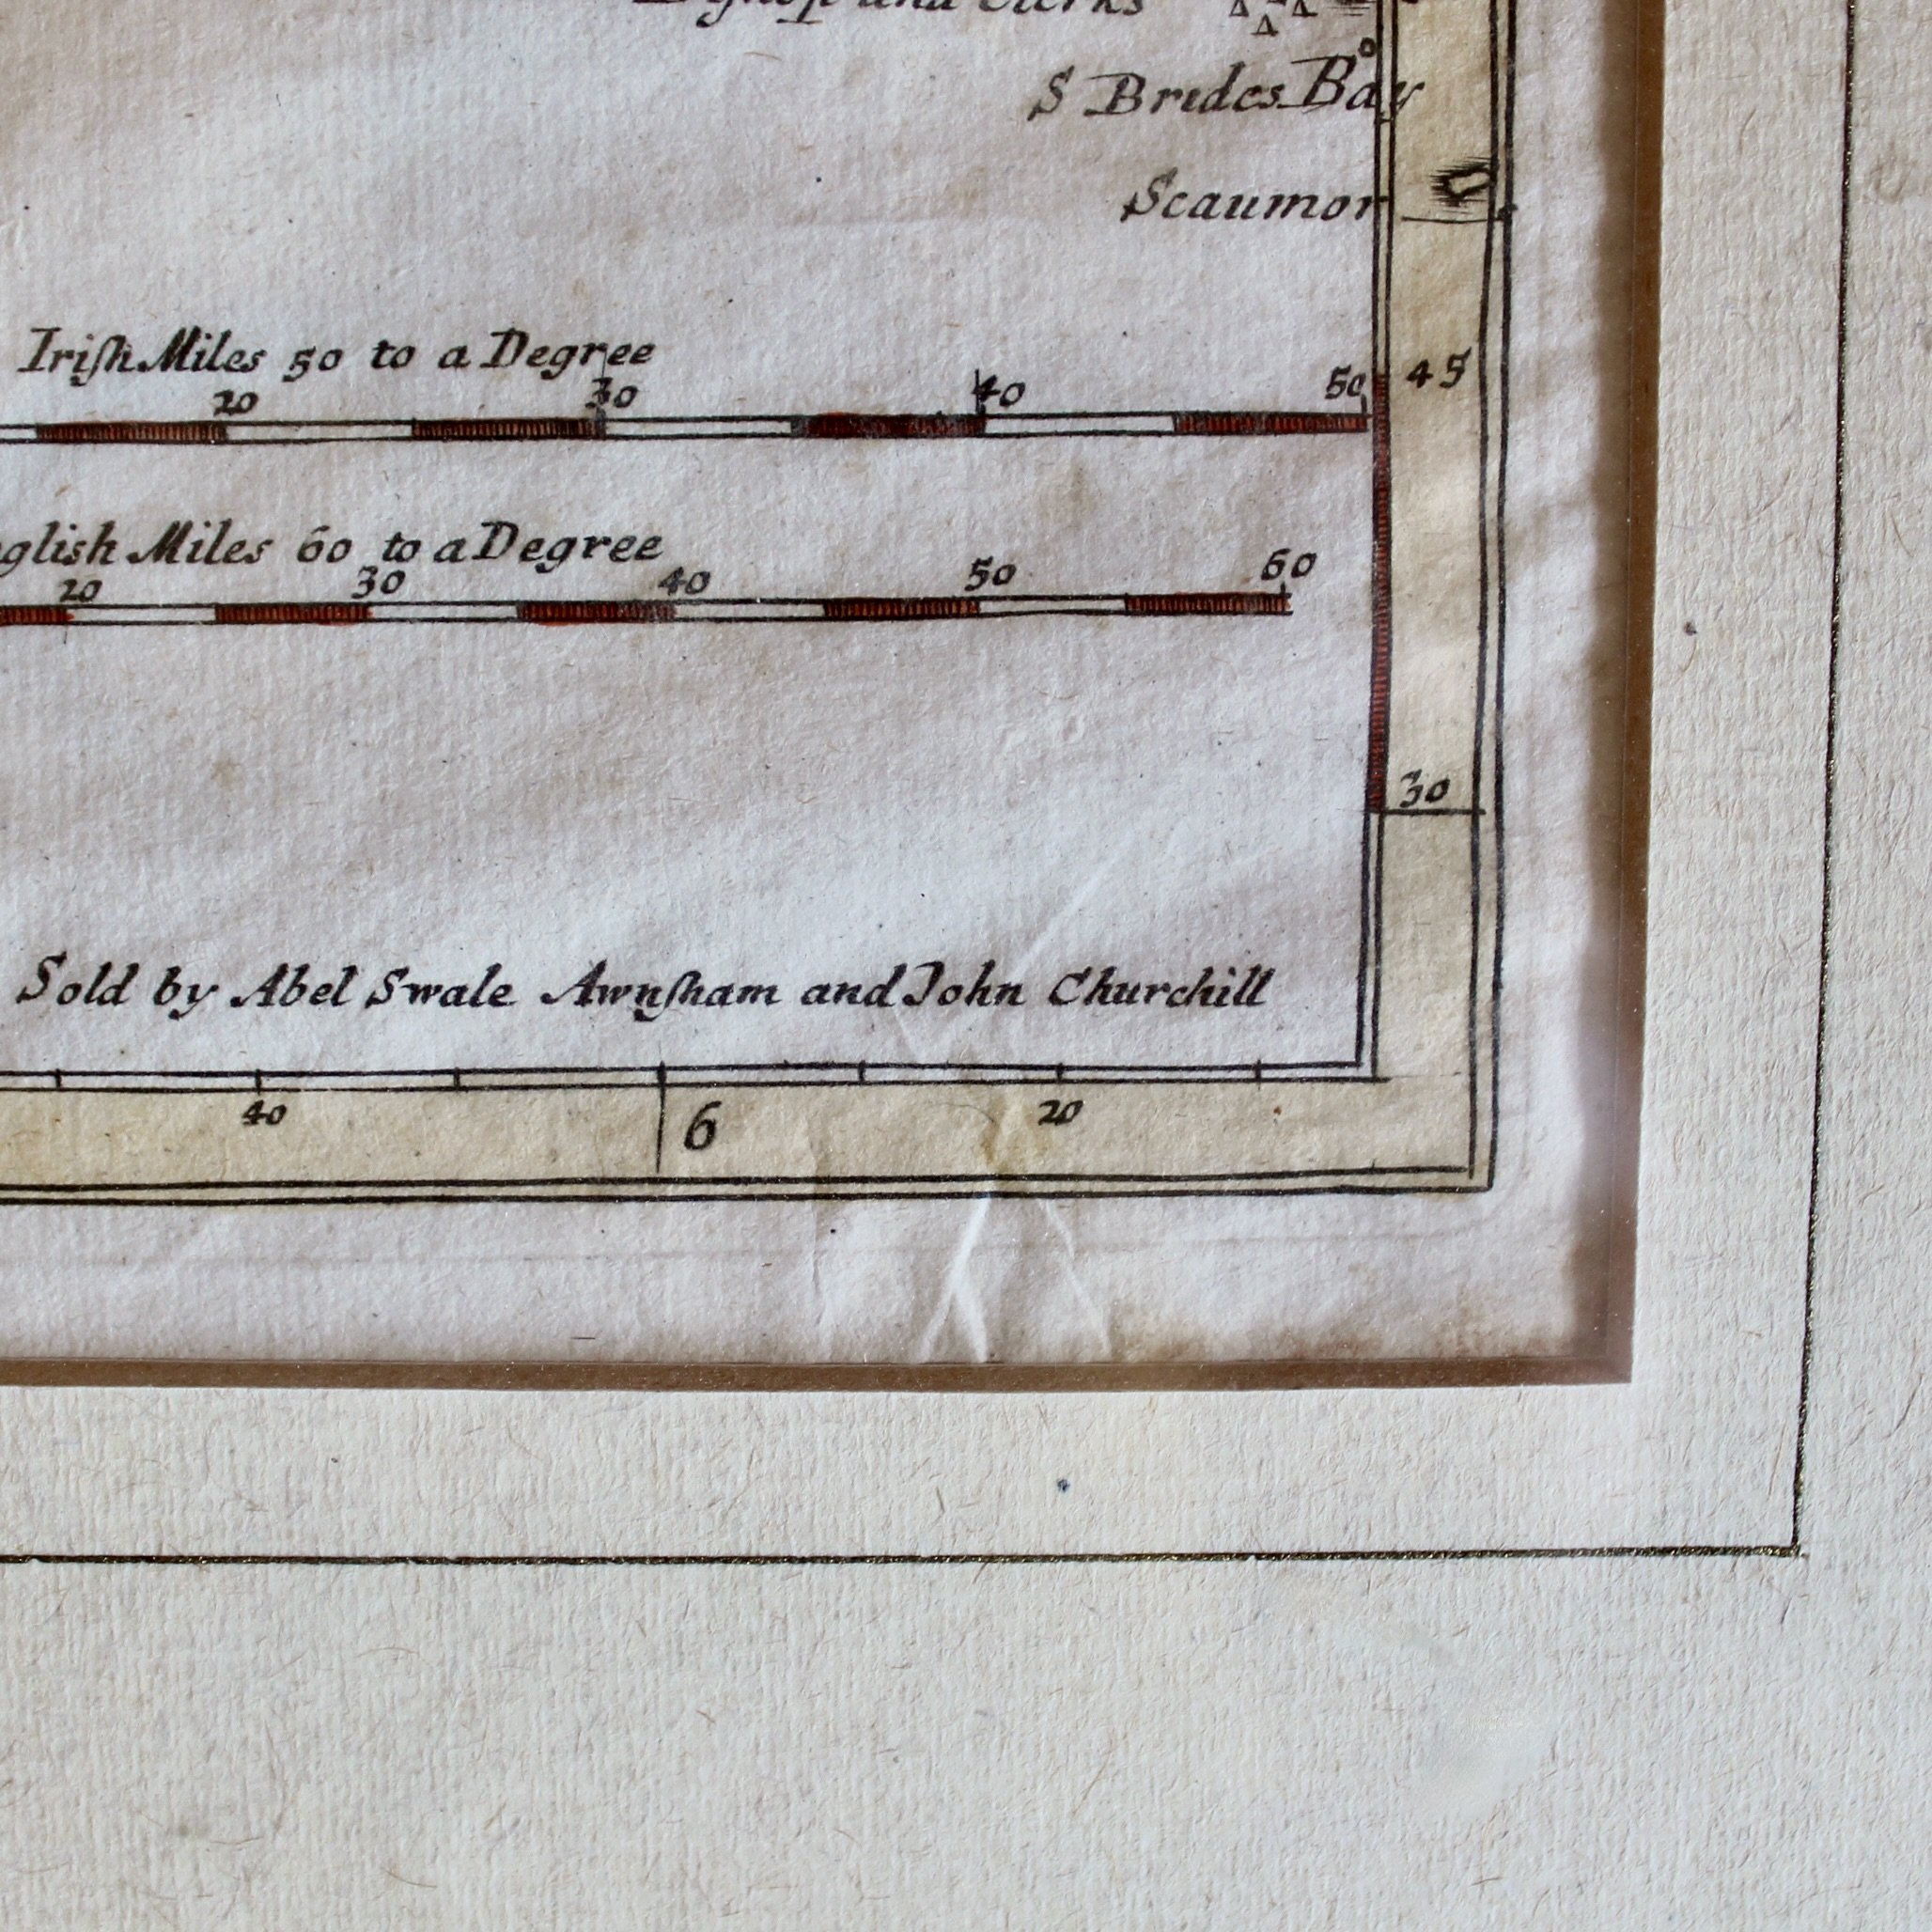 and Clerks
S Brides Bay
Scaumor
Iriſh Miles 50 to a Degree
20 30 40 50
45
English Miles 60 to a Degree
20 30 40 50 60
30
Sold by Abel Swale Awnſham and John Churchill
40 6 20